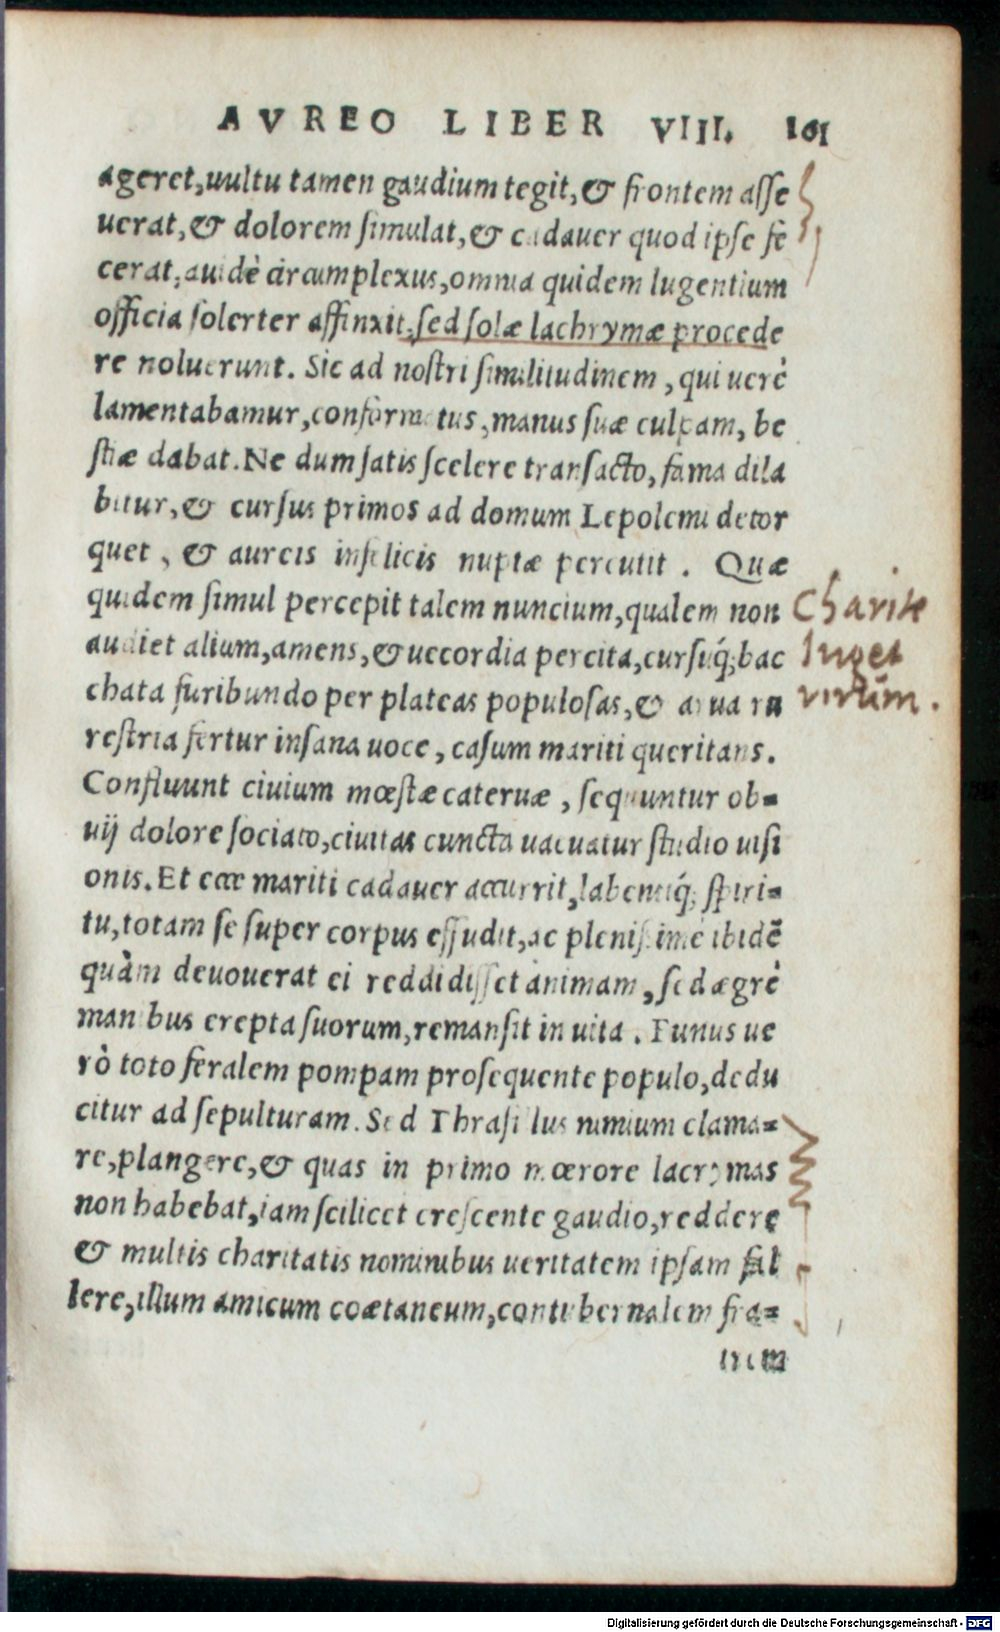 AVREO LIBER VIII. 161
ageret,uultu tamen gaudium tegit,& frontem asse
uerat,& dolorem simulat,& cadauer quod ipse fe
cerat,auidè circumplexus,omnia quidem lugentium
officia solerter affinxit,sed solæ lachrymæ procede
re noluerunt. Sic ad nostri similitudinem, qui uerè
lamentabamur,conformatus,manus suæ culpam, be
stiæ dabat.Ne dum satis scelere transacto, fama dila
bitur,& cursus primos ad domum Lepolemi detor
quet, & aureis infelicis nuptæ percutit. Quæ
quidem simul percepit talem nuncium,qualem non
audiet alium,amens,&uecordia percita,cursuq́;bac
chata furibundo per plateas populosas,& arua ru
restria fertur insana uoce, casum mariti queritans.
Confluunt ciuium mœstæ cateruæ, sequuntur ob-
uij dolore sociato,ciuitas cuncta uacuatur studio uisi
onis. Et ecce mariti cadauer accurrit,labentiq́; spiri-
tu,totam se super corpus effudit,ac plenissimè ibidē
quàm deuouerat ei reddidisset animam, sed ægrè
manibus erepta suorum,remansit in uita. Funus ue
rò toto feralem pompam prosequente populo,dedu
citur ad sepulturam. Sed Thrasillus nimium clama-
re,plangere,& quas in primo mœrore lacrymas
non habebat,iam scilicet crescente gaudio,reddere
& multis charitatis nominibus ueritatem ipsam fal
lere,illum amicum coætaneum,contubernalem fra-
trem
Charite
luget
virūm.
Digitalisierung gefördert durch die Deutsche Forschungsgemeinschaft - DFG